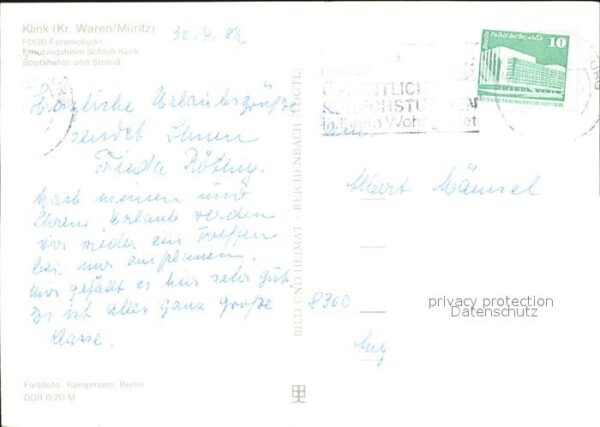 Klink (Kr. Waren/Müritz)
FDGB-Ferienobjekt
Erholungsheim Schloß Klink
Bootshafen und Strand
30.4.82
Herzliche Urlaubsgrüße
sendet Ihnen
Frieda Röthig.
Nach meinem und
Ihrem Urlaub werden
wir wieder ein Treffen
bei mir einplanen.
Mir gefällt es hier sehr gut.
Es ist alles ganz große
Classe.
Farbfoto: Kampmann, Berlin
DDR 0,20 M
BILD UND HEIMAT REICHENBACH (VOGTL)
Palast der Republik
10
in Ihrem Wohngebiet
Albert Mämsel
8300
privacy protection
Datenschutz